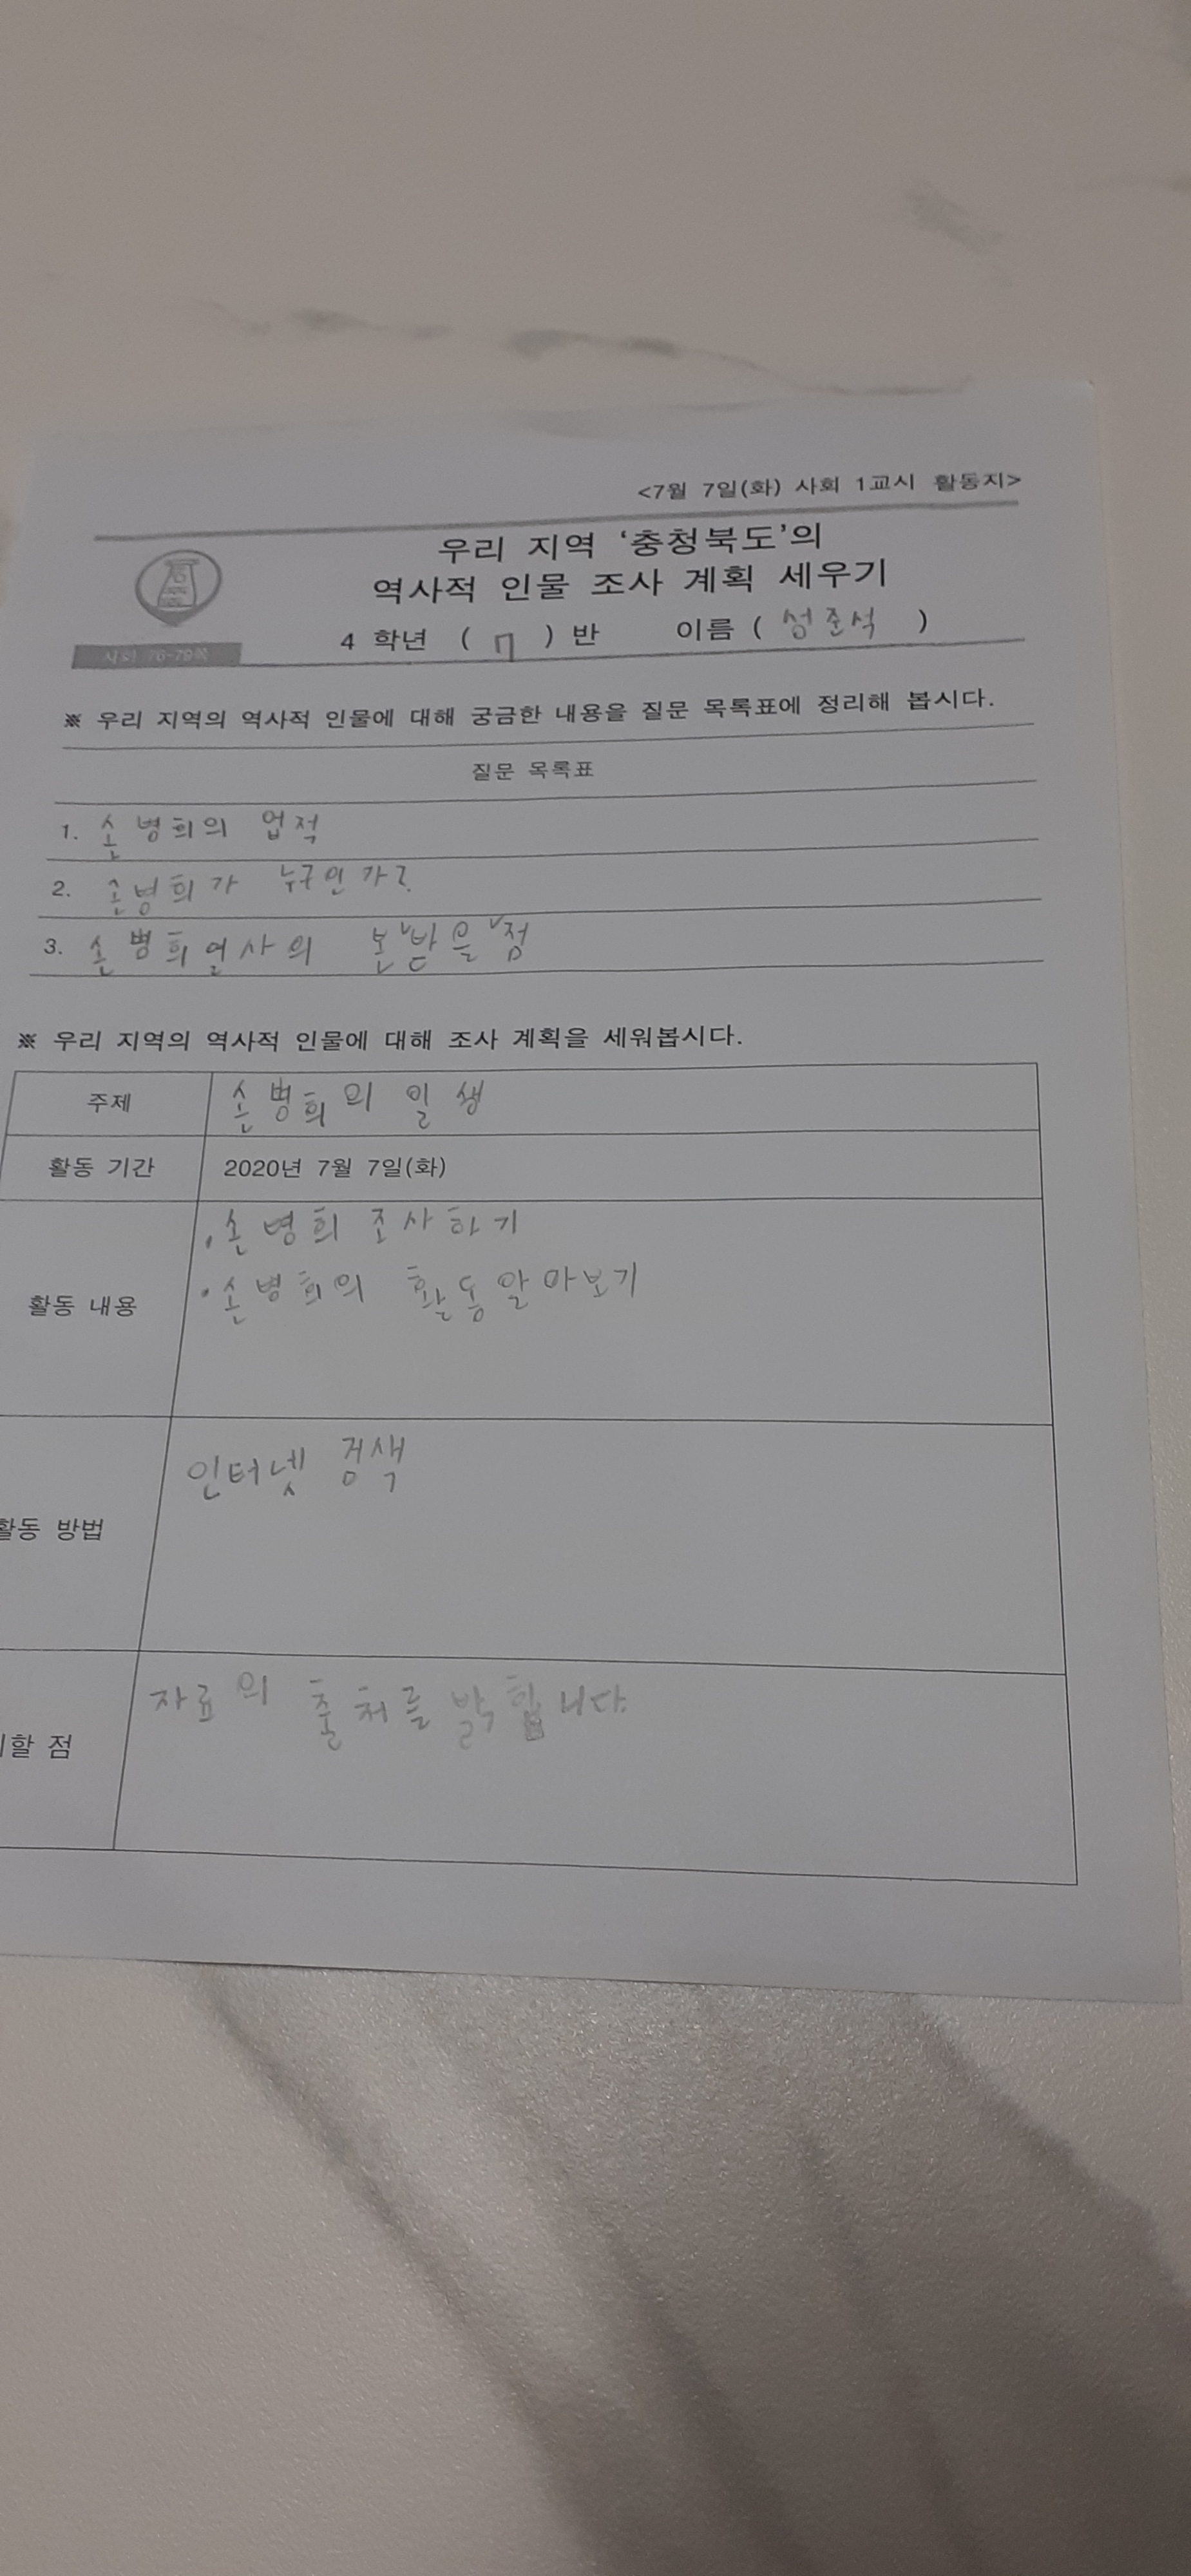 <7월 7일(화) 사회 1교시 활동지>
우리 지역 '충청북도'의
역사적 인물 조사 계획 세우기
사회 76-79쪽
4 학년 ( 7 ) 반 이름 ( 성준석 )
※ 우리 지역의 역사적 인물에 대해 궁금한 내용을 질문 목록표에 정리해 봅시다.
질문 목록표
1. 손병희의 업적
2. 손병희가 누구인가?
3. 손병희열사의 본받을점
※ 우리 지역의 역사적 인물에 대해 조사 계획을 세워봅시다.
주제 손병희의 일생
활동 기간 2020년 7월 7일(화)
·손병희 조사하기
·손병희의 활동알아보기
활동 내용
인터넷 검색
활동 방법
자료의 출처를 밝힙니다.
할 점